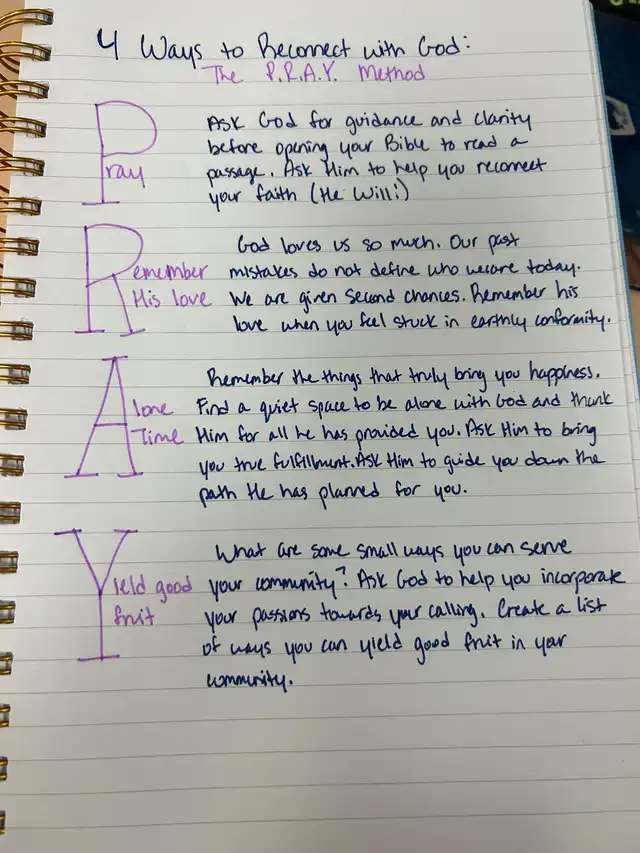 4 Ways to Reconnect with God:
The P.R.A.Y. Method
Pray
Ask God for guidance and clarity
before opening your Bible to read a
passage. Ask Him to help you reconnect
your faith (He Will!)
Remember
His love
God loves us so much. Our past
mistakes do not define who we are today.
We are given second chances. Remember his
love when you feel stuck in earthly conformity.
Alone
Time
Remember the things that truly bring you happiness.
Find a quiet space to be alone with God and thank
Him for all he has provided you. Ask Him to bring
you true fulfillment. Ask Him to guide you down the
path He has planned for you.
Yield good
fruit
What are some small ways you can serve
your community? Ask God to help you incorporate
your passions towards your calling. Create a list
of ways you can yield good fruit in your
community.